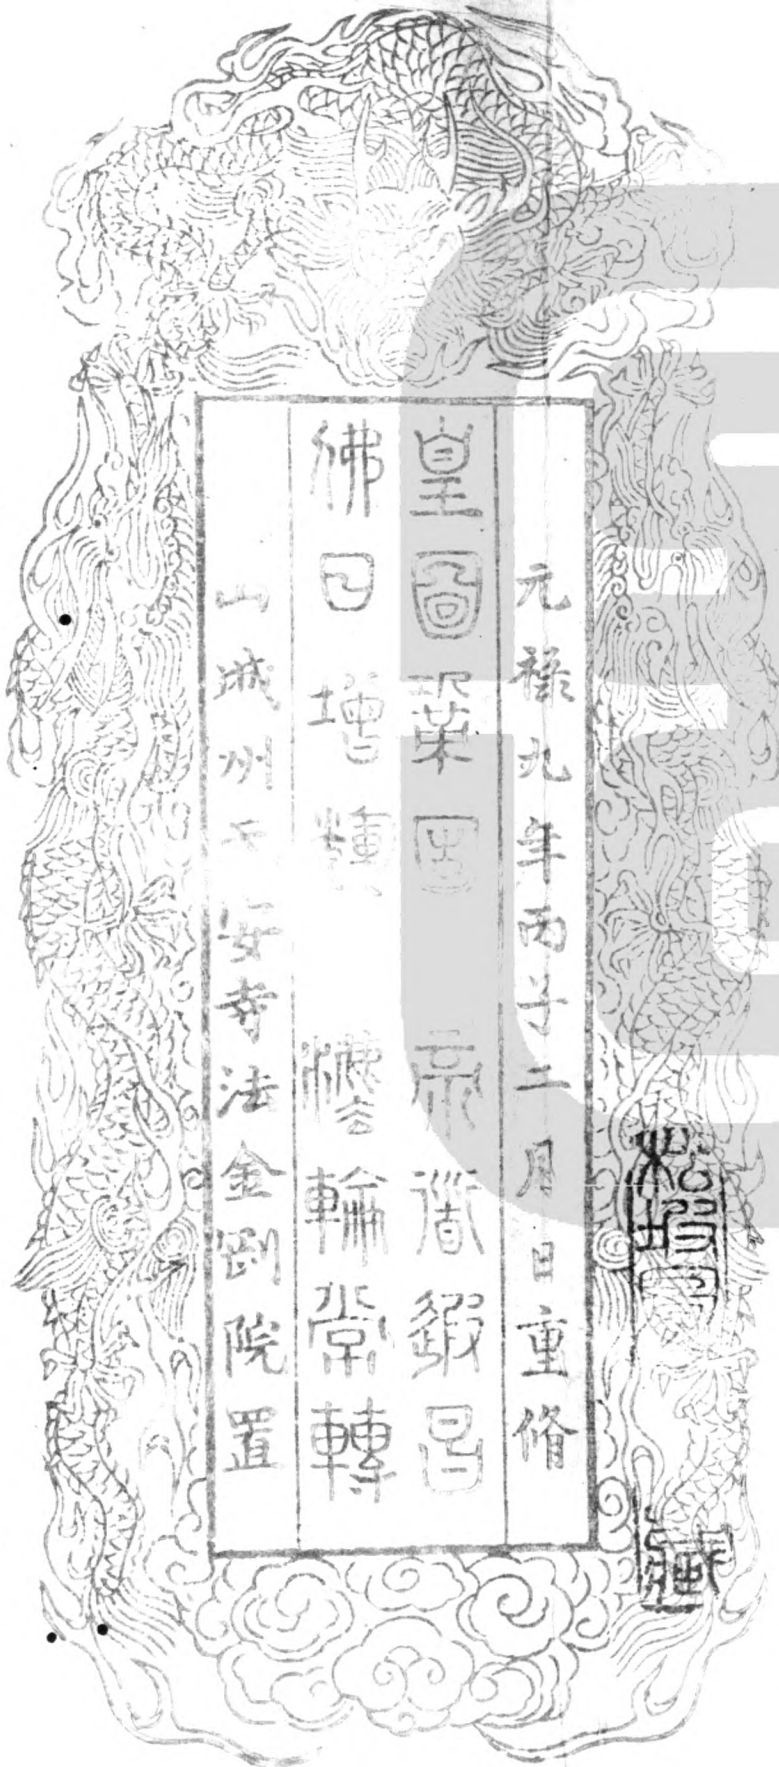 元祿九年丙子二月 日重脩
皇圖鞏固 帝道遐昌
佛日增輝 灋輪常轉
山城州平安寺法金剛院置
藏